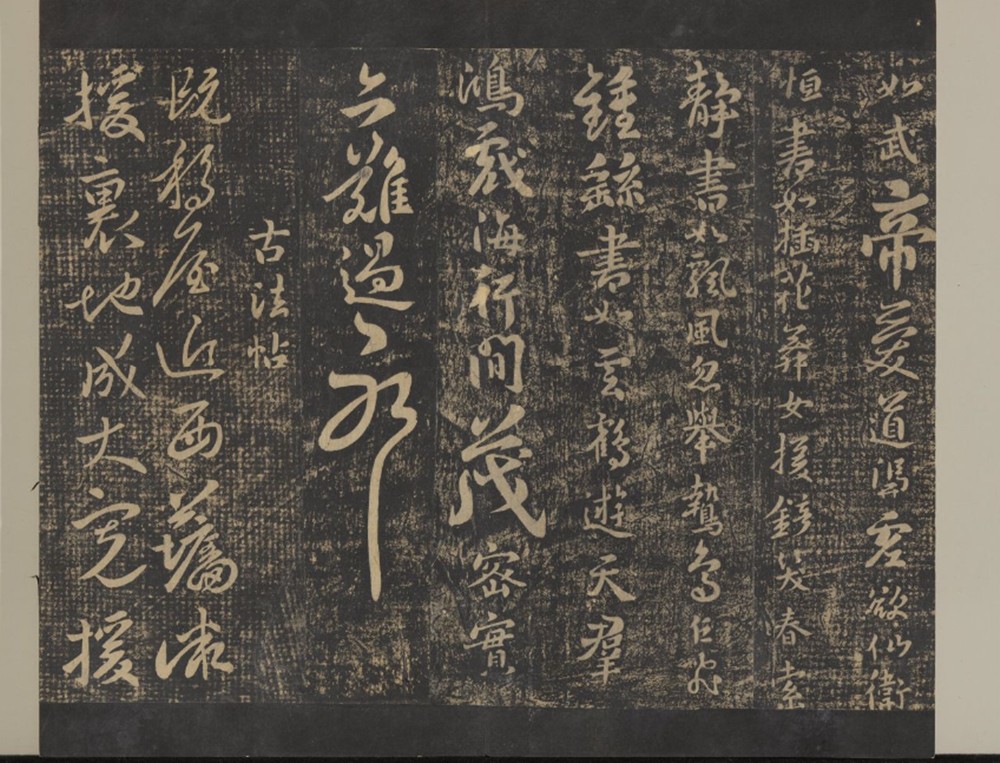 如武帝愛道馮虛欲仙衛
恒書如插花舞女援鏡笑春索
靜書如飄風忽舉鷙鳥乍飛
鍾繇書如雲鶴遊天群
鴻戲海行間茂密實
亦難過耶
古法帖
既移屋近西牆
援裏地成大寬援